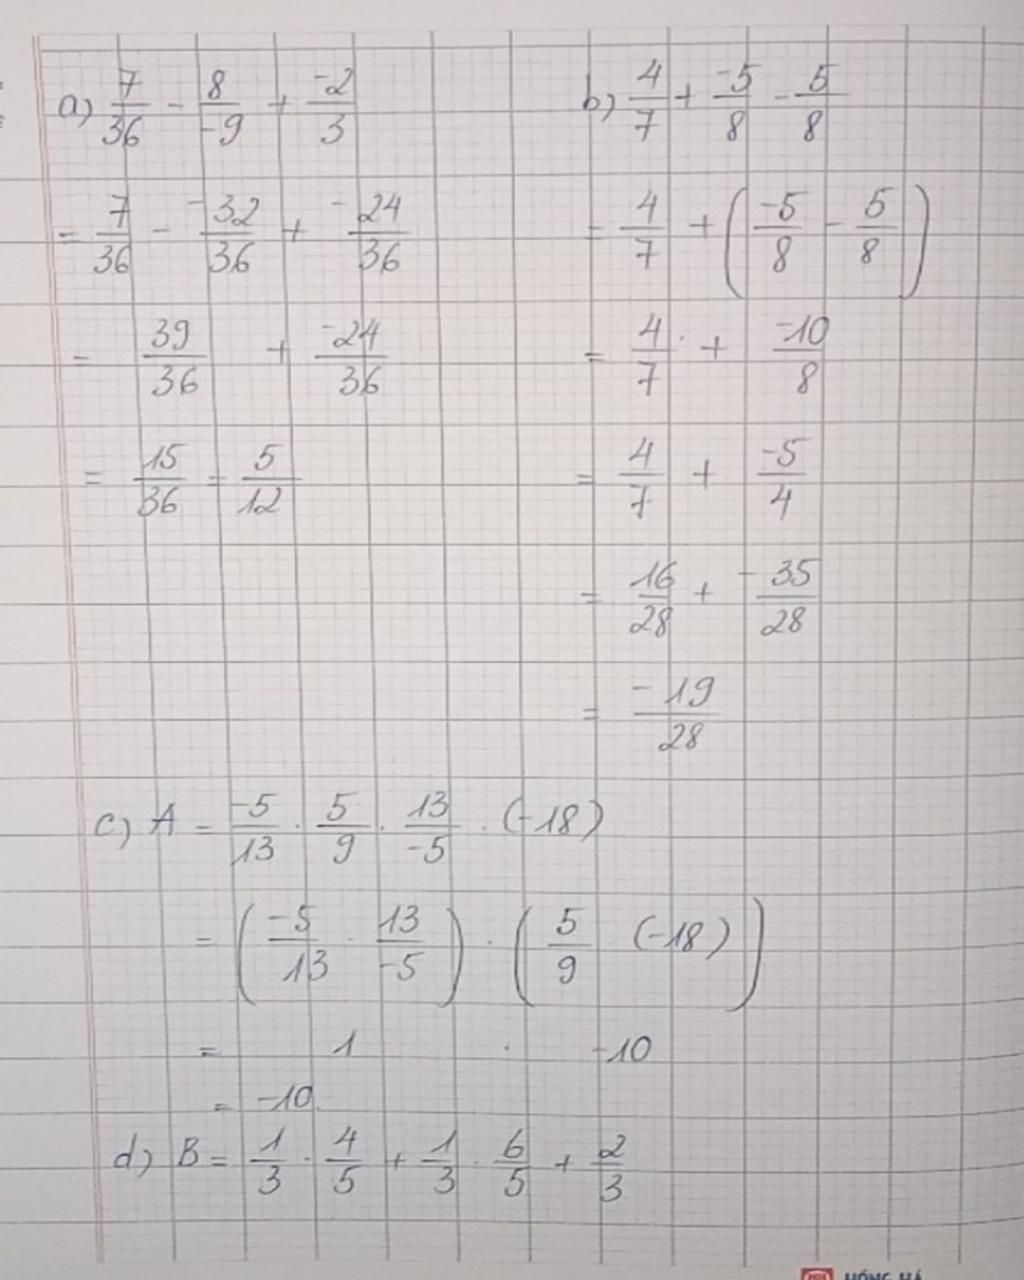 a) 7/36 - 8/-9 + -2/3
= 7/36 - -32/36 + -24/36
= 39/36 + -24/36
= 15/36 = 5/12
b) 4/7 + -5/8 - 5/8
= 4/7 + (-5/8 - 5/8)
= 4/7 + -10/8
= 4/7 + -5/4
= 16/28 + -35/28
= -19/28
c) A = -5/13 . 5/9 . 13/-5 . (-18)
= (-5/13 . 13/-5) . (5/9 (-18))
= 1 . -10
= -10
d) B = 1/3 . 4/5 + 1/3 . 6/5 + 2/3
HỒNG HÀ